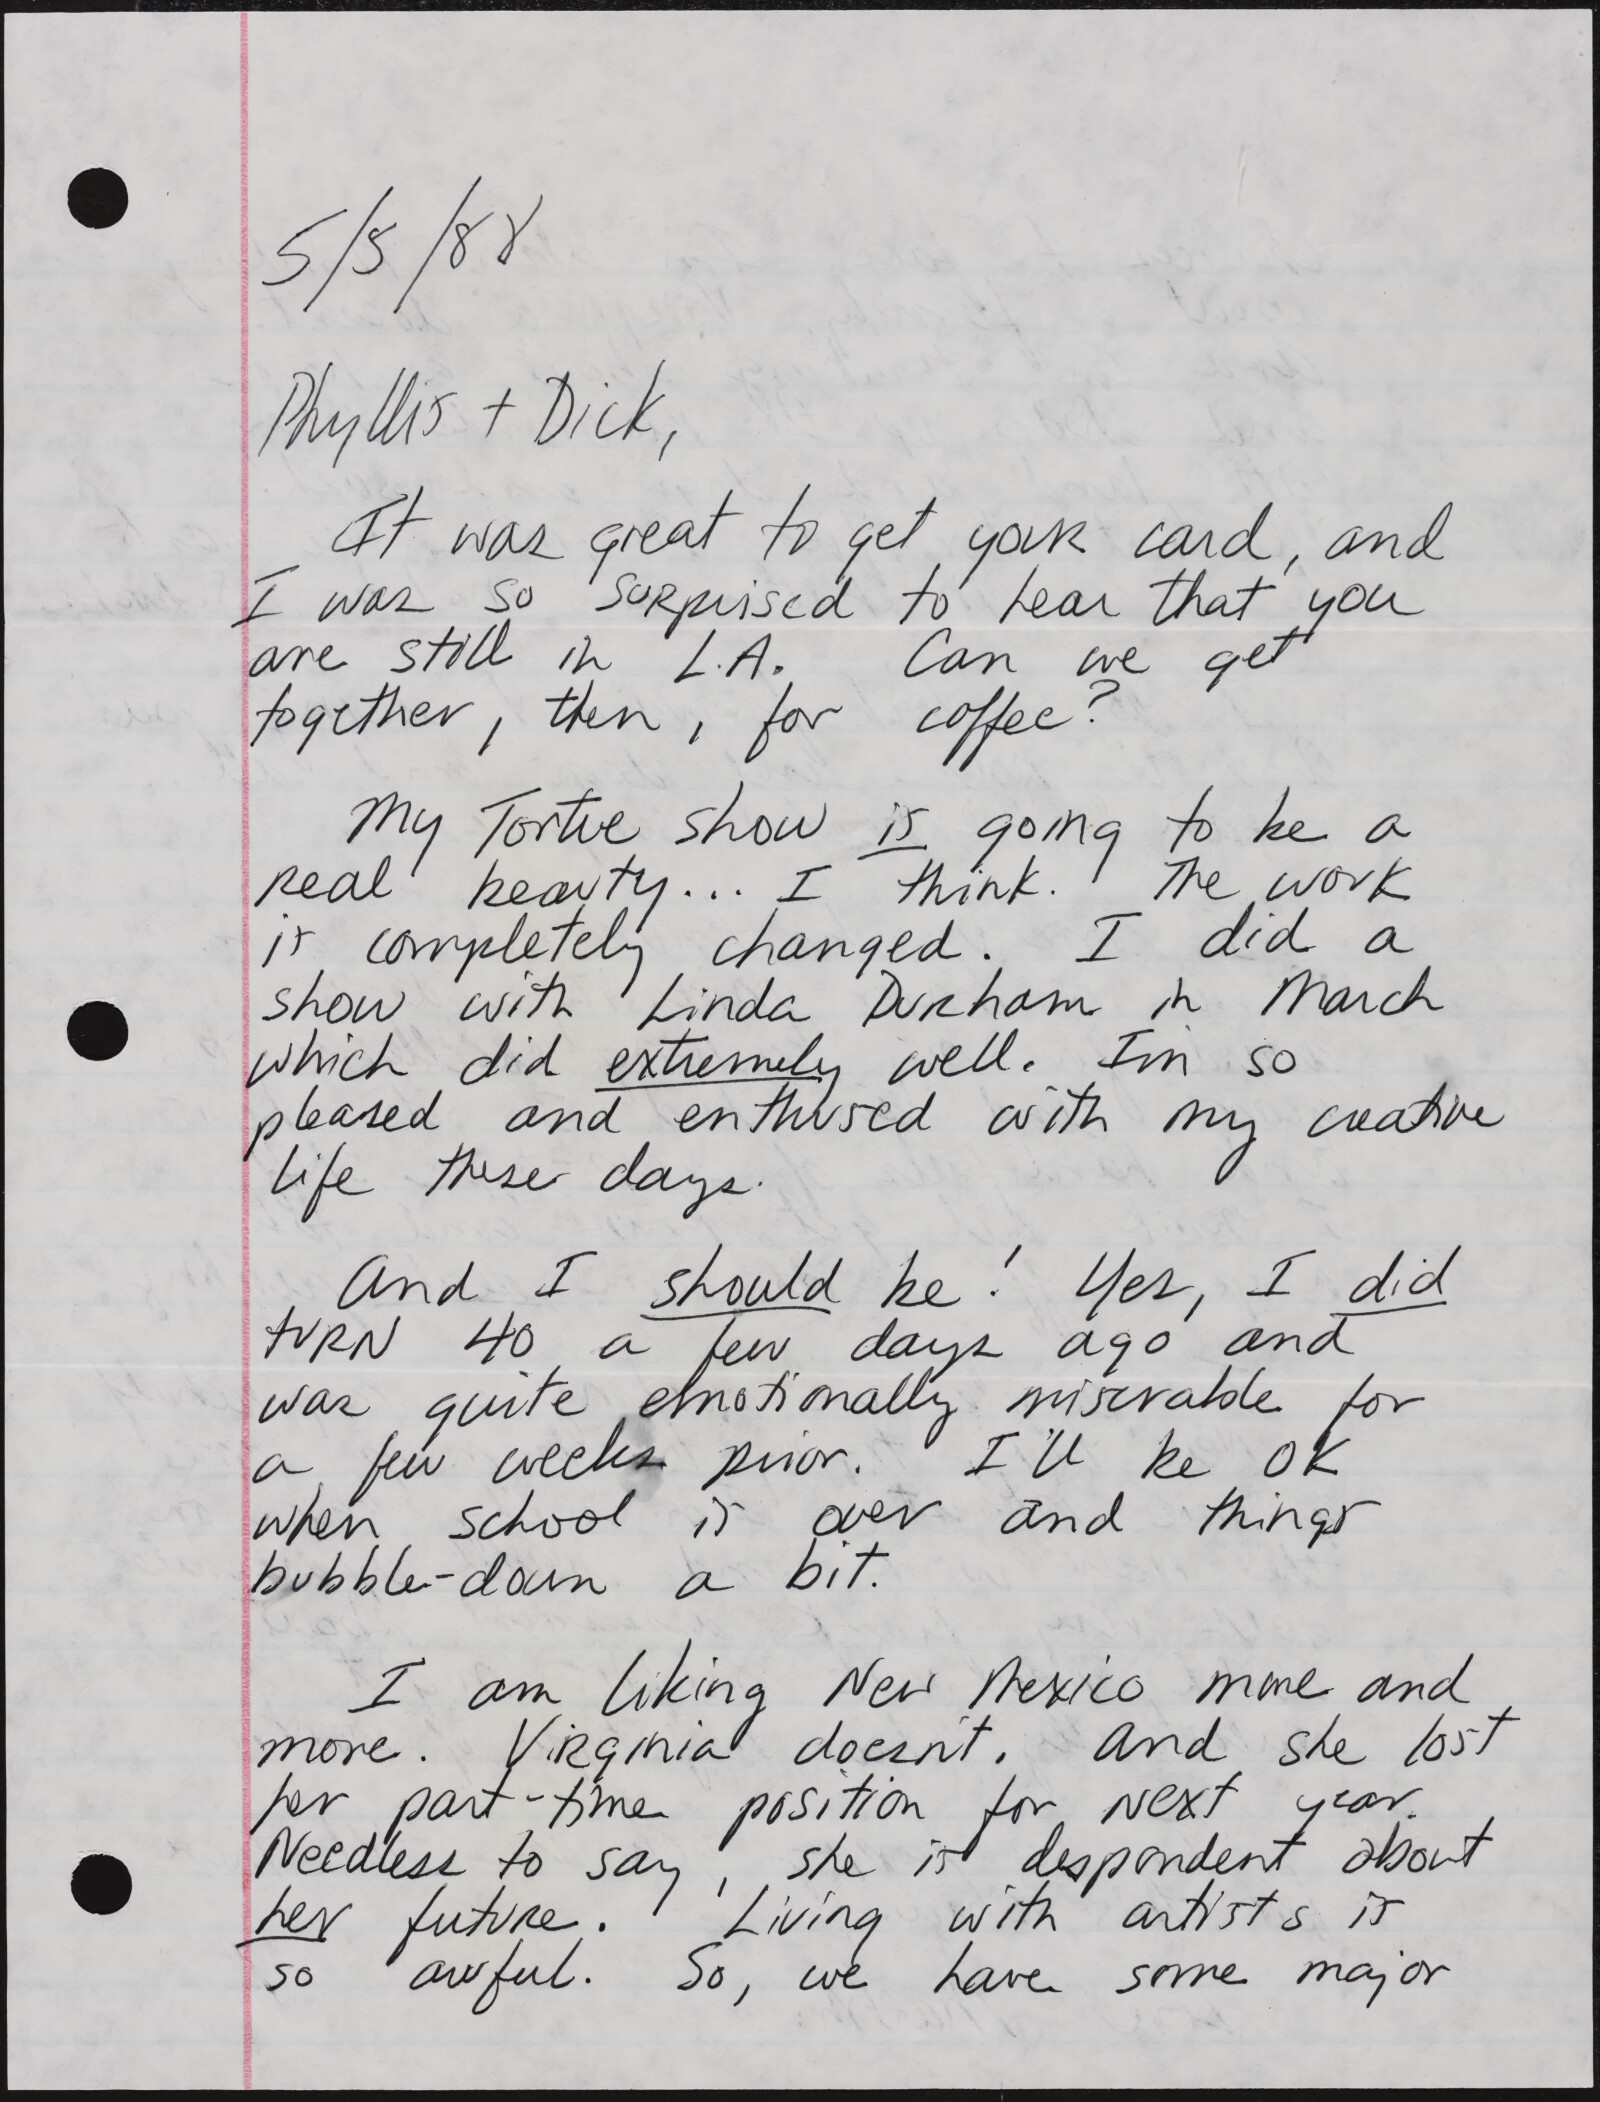 5/5/88
Phyllis + Dick,
It was great to get your card, and
I was so surprised to hear that you
are still in L.A. Can we get
together, then, for coffee?
My Tortue show is going to be a
real beauty... I think. The work
is completely changed. I did a
show with Linda Durham in March
which did extremely well. I'm so
pleased and enthused with my creative
life these days.
And I should be! Yes, I did
turn 40 a few days ago and
was quite emotionally miserable for
a few weeks prior. I'll be OK
when school is over and things
bubble-down a bit.
I am liking New Mexico more and
more. Virginia doesn't. And she lost
her part-time position for next year.
Needless to say, she is despondent about
her future. Living with artists is
so awful. So, we have some major